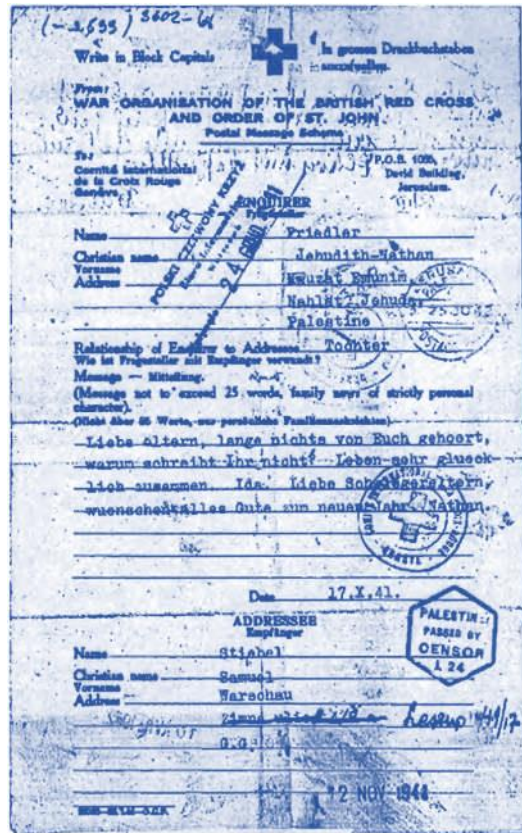 (-2,693) 3602-
Write in Block Capitals
In grossen Druckbuchstaben
auszufuellen.
From:
WAR ORGANISATION OF THE BRITISH RED CROSS
AND ORDER OF ST. JOHN
Postal Message Scheme
To:
Comité International
de la Croix Rouge
Genève
P.O.B. 1085,
David Building,
Jerusalem.
POLSKI CZERWONY KRZYŻ
24 GRUD
ENQUIRER
Fragesteller
Name Friedler
Christian name Jehudith-Nathan
Vorname
Address Kwuzat Emunim
Nahlat Jehuda
Palestine
Relationship of Enquirer to Addressee Tochter
Wie ist Fragesteller mit Empfänger verwandt?
Message — Mitteilung.
(Message not to exceed 25 words, family news of strictly personal
character).
(Nicht über 25 Worte, nur persönliche Familiennachrichten).
Liebe eltern, lange nichts von Euch gehoert,
warum schreibt Ihr nicht? Leben sehr glueck
lich zusammen. Ida. Liebe Schwiegereltern,
wuenschen alles Gute zum neuen Jahr. Nathan
Date 17.X.41.
PALESTINE
PASSED BY
CENSOR
L 24
ADDRESSEE
Empfänger
Name Stiebel
Christian name Samuel
Vorname
Address Warschau
Zimna
G.G
12 NOV 1941